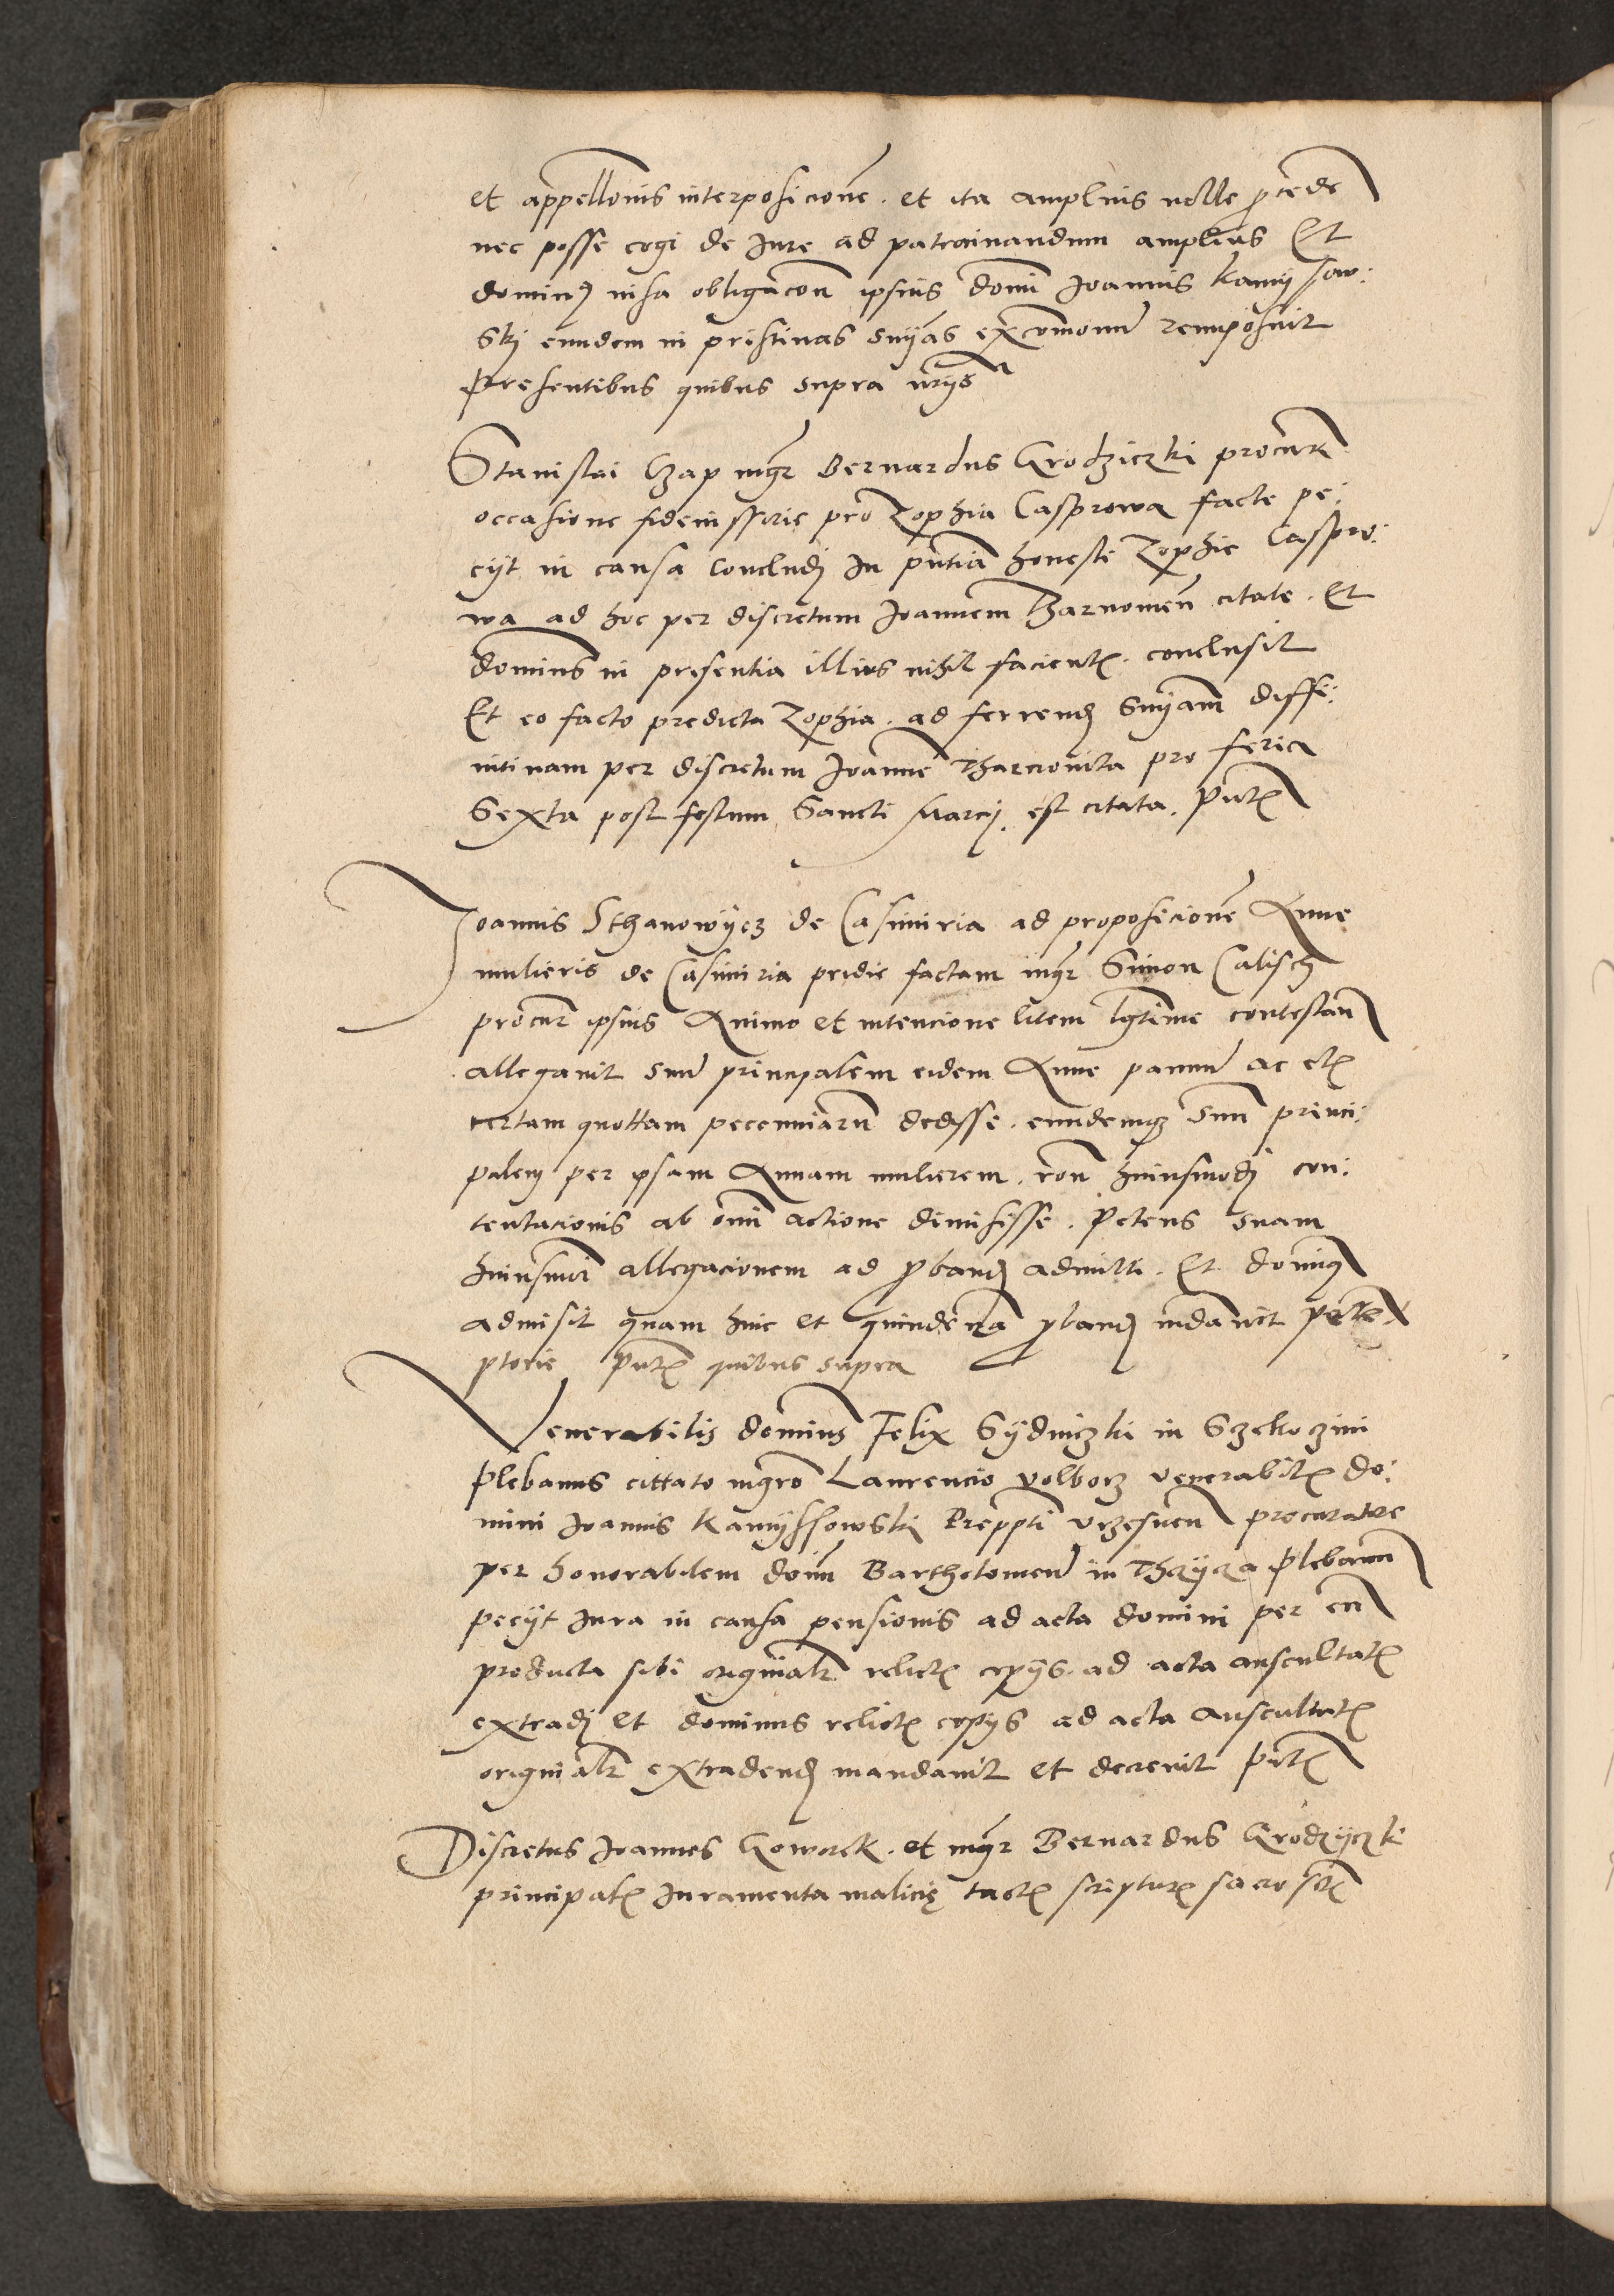 et appellonis interposicione. et ita amplius nolle procede
nec posse cogi de Jure ad patrocinandum amplius Et
dominus visa obligacon ipsius domi Joannis Kamyssow:
skj eundem in pristinas snyas excomonum reimposuit
Presentibus quibus supra
Stanislai Czap mgr Bernardus Grodziczki procur
occasione fideiussorie pro Zophia Casprowa facte pe:
cyt in causa concludj In pntia honeste Zophie Caspro:
wa ad hoc per discretum Joannem citate. Et
dominus in presentia illius nihil facient. conclusit
Et eo facto predicta Zophia. ad ferrend snyam diffi:
nitinam per discretum Joanne pro feria
Sexta post festum Sancti Marcj. est citata. Pnt
Joannis Sthanowycz de Casimiria ad proposicione Anne
mulieris de Casimiria pridie factam mgr Simon Calisch
procur ipsius Animo et intencione litem lgtime contestan
allegavit suu principalem eidem Anne pannu ac et
certam quottam pecenniaru dedisse. eundemq suu princi:
palem per ipsam Annam mulierem. ron huiusmodj con:
tentacionis ab omi actione dimisisse. Petens suam
huiusmoi allegacionem ad proband admitti. Et dominus
admisit quam hinc et quindena proband mdavit perem
ptorie Pnt quibus supra
Venerabilis dominus Felix Sydniczki in Sczekoczini
Plebanus cittato mgro Laurencio Volborz venerabil do:
mini Joannis Kamyssowski Preppti procuratore
per honorabilem domi Bartholomeu in Thczycza Plebanu
pecyt Jura in causa pensionis ad acta domini per eu
producta sibi originalr relict copys. ad acta auscultat
extradj et dominus relict copys ad acta auscultat
originalr extradend mandavit et decrevit Pnt
Discretus Joannes Gowork. et mgr Bernardus Grodzyczki
principal Juramenta malicię tact scriptur sacrosct